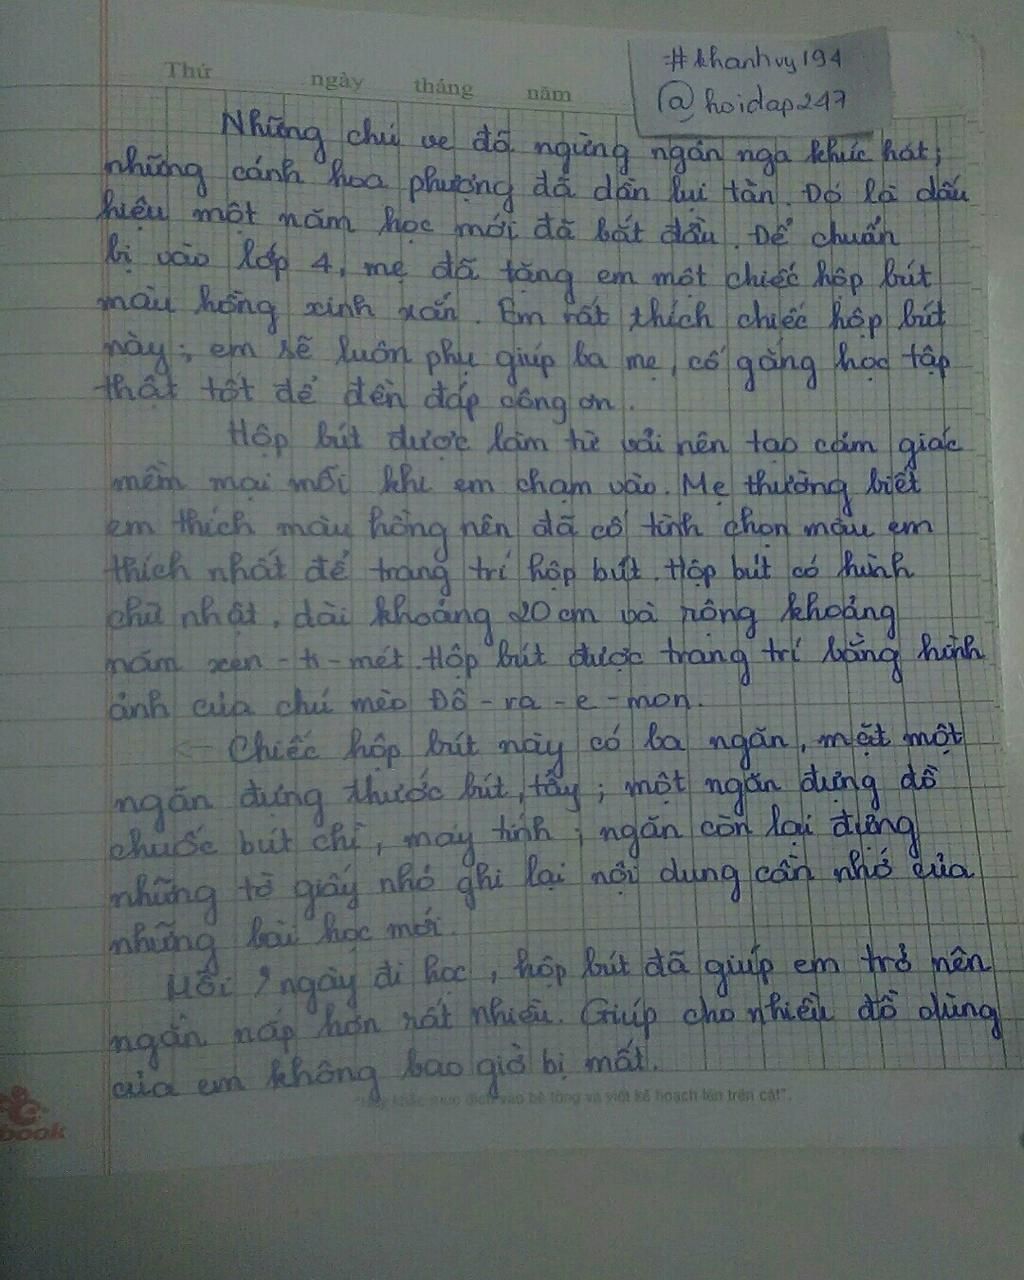 #khanhvy194
@hoidap247
Thứ ngày tháng năm
Những chú ve đã ngừng ngân nga khúc hát;
những cánh hoa phượng đã dần lụi tàn. Đó là dấu
hiệu một năm học mới đã bắt đầu. Để chuẩn
bị vào lớp 4, mẹ đã tặng em một chiếc hộp bút
màu hồng xinh xắn. Em rất thích chiếc hộp bút
này; em sẽ luôn phụ giúp ba mẹ, cố gắng học tập
thật tốt để đền đáp công ơn.
Hộp bút được làm từ vải nên tạo cảm giác
mềm mại mỗi khi em chạm vào. Mẹ thường biết
em thích màu hồng nên đã cố tình chọn màu em
thích nhất để trang trí hộp bút. Hộp bút có hình
chữ nhật, dài khoảng 20 cm và rộng khoảng
năm xen-ti-mét. Hộp bút được trang trí bằng hình
ảnh của chú mèo Đô-ra-e-mon.
Chiếc hộp bút này có ba ngăn, mặt một
ngăn đựng thước bút, tẩy; một ngăn đựng đồ
chuốc bút chì, máy tính; ngăn còn lại đựng
những tờ giấy nhỏ ghi lại nội dung cần nhớ của
những bài học mới.
Mỗi ngày đi học, hộp bút đã giúp em trở nên
ngăn nắp hơn rất nhiều. Giúp cho nhiều đồ dùng
của em không bao giờ bị mất.
"Hãy khắc mục đích vào bê tông và viết kế hoạch lên trên cát".
book